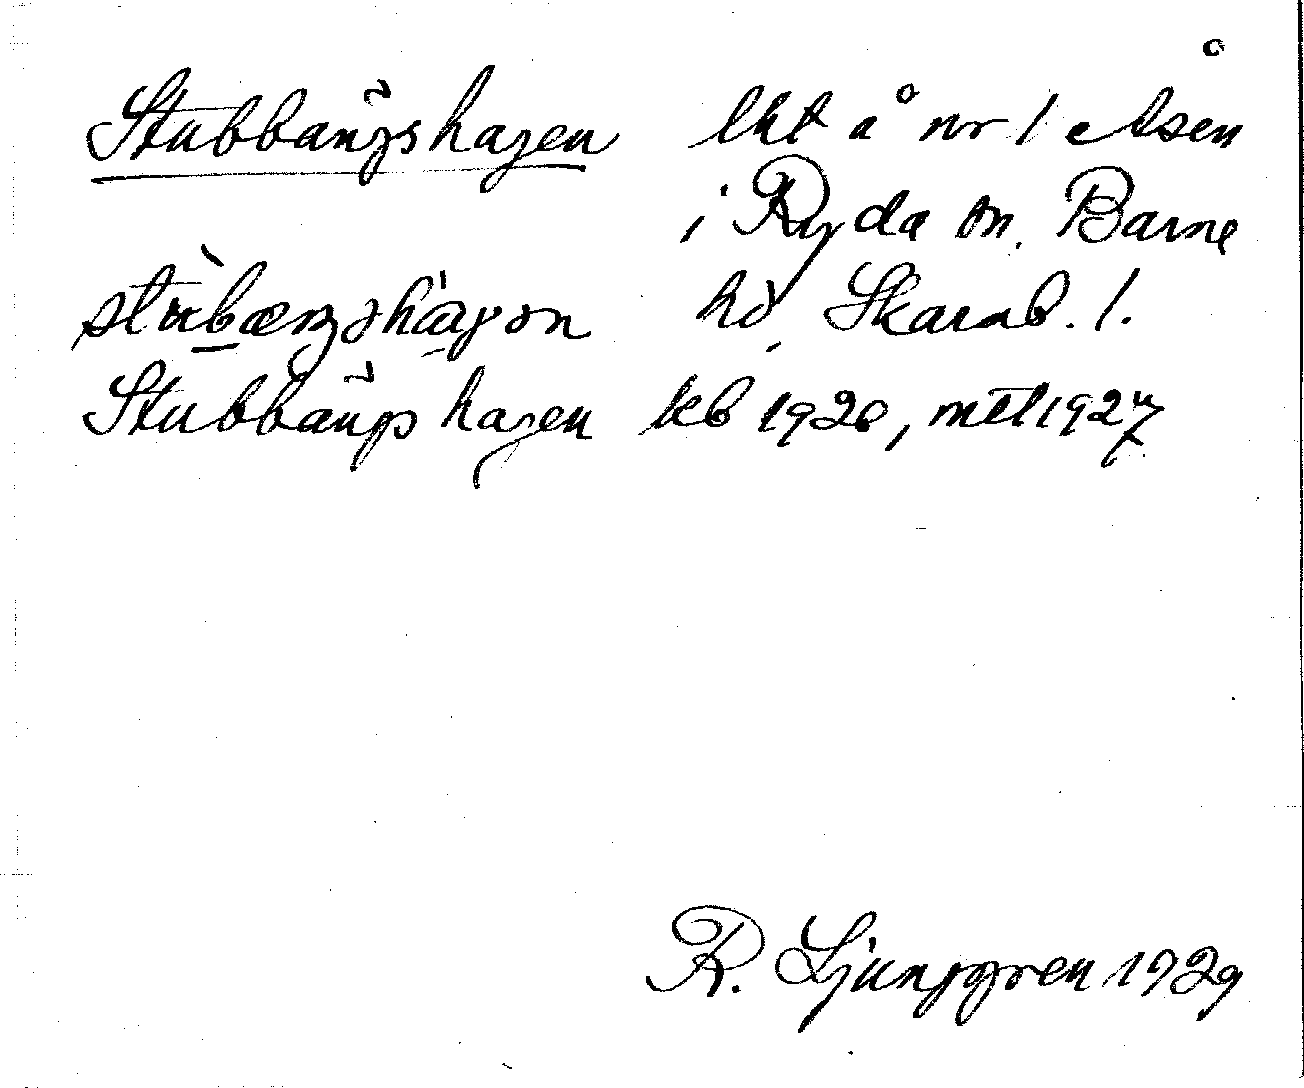 Stubbängshagen lht å nr 1 Åsen
i Ryda sn. Barne
hd, Skarab. l.
Stubbängs hagen kb 1920, mtl 1927
R. Ljunggren 1929